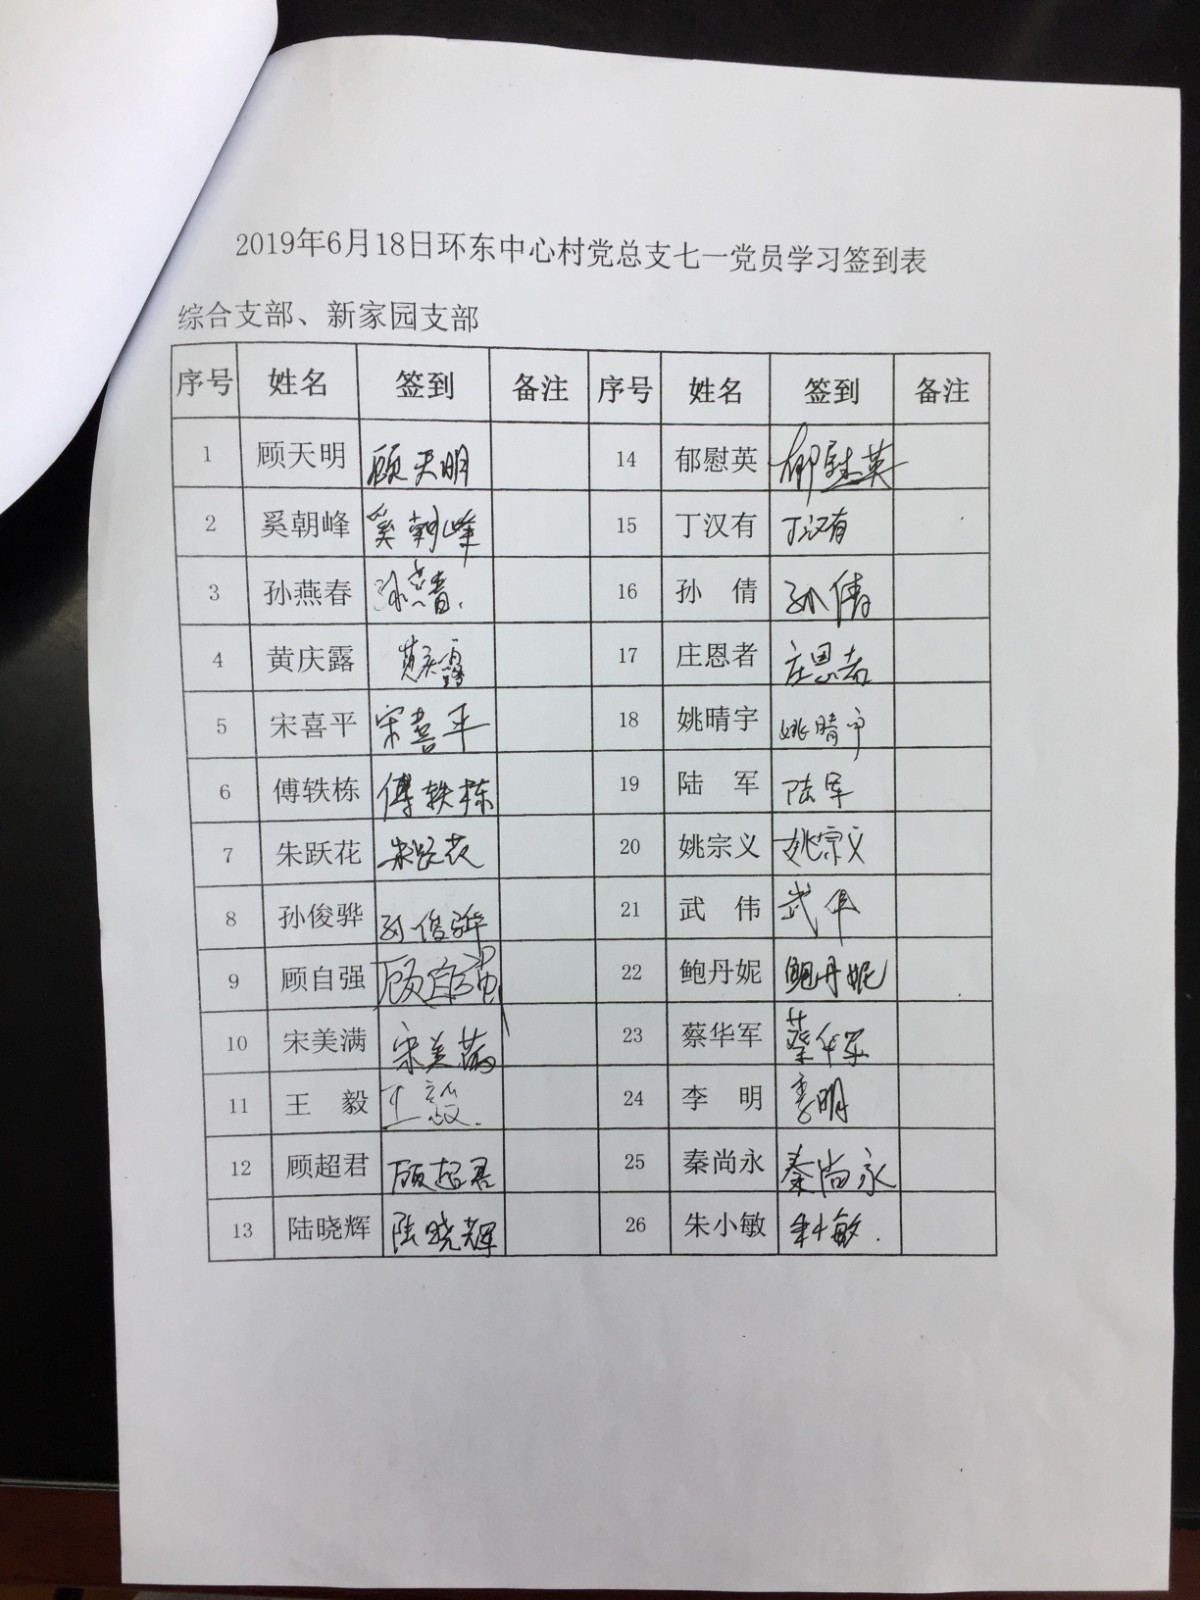 2019年6月18日环东中心村党总支七一党员学习签到表
综合支部、新家园支部
序号 姓名 签到 备注 序号 姓名 签到 备注
1 顾天明 顾天明 14 郁慰英 郁慰英
2 奚朝峰 奚朝峰 15 丁汉有 丁汉有
3 孙燕春 孙燕春 16 孙 倩 孙倩
4 黄庆露 黄庆露 17 庄恩者 庄恩者
5 宋喜平 宋喜平 18 姚晴宇 姚晴宇
6 傅轶栋 傅轶栋 19 陆 军 陆军
7 朱跃花 朱跃花 20 姚宗义 姚宗义
8 孙俊骅 孙俊骅 21 武 伟 武伟
9 顾自强 顾自强 22 鲍丹妮 鲍丹妮
10 宋美满 宋美满 23 蔡华军 蔡华军
11 王 毅 王毅 24 李 明 李明
12 顾超君 顾超君 25 秦尚永 秦尚永
13 陆晓辉 陆晓辉 26 朱小敏 朱小敏